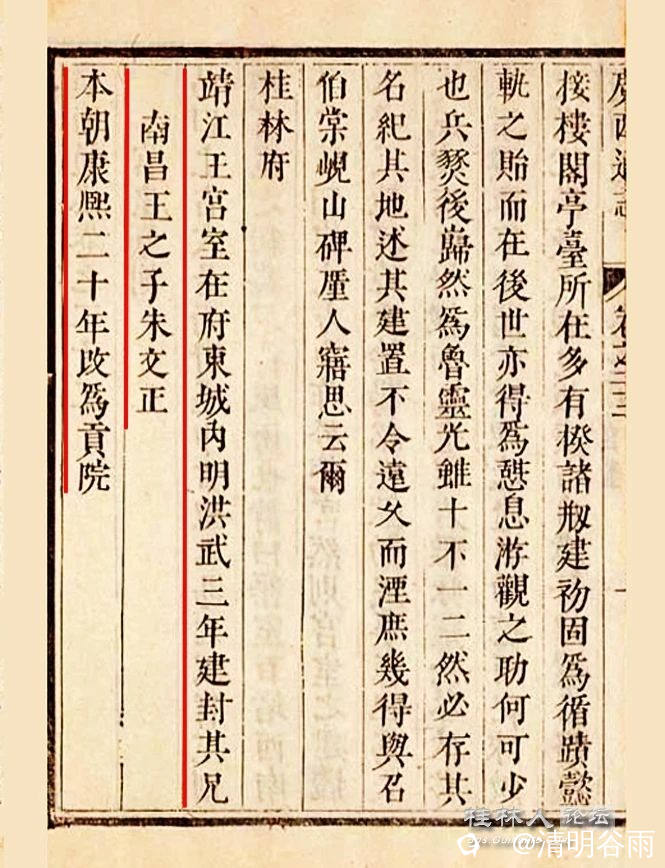 廣西通志
接樓閣亭臺所在多有揆諸剏建初固爲循蹟懿
軌之貽而在後世亦得爲憇息游觀之助何可少
也兵燹後巋然爲魯靈光雖十不一二然必存其
名紀其地述其建置不令遠久而湮庶幾得與召
伯棠峴山碑廑人寤思云爾
桂林府
靖江王宮室在府東城內明洪武三年建封其兄
南昌王之子朱文正
本朝康熙二十年改爲貢院
桂林人论坛
@清明谷雨